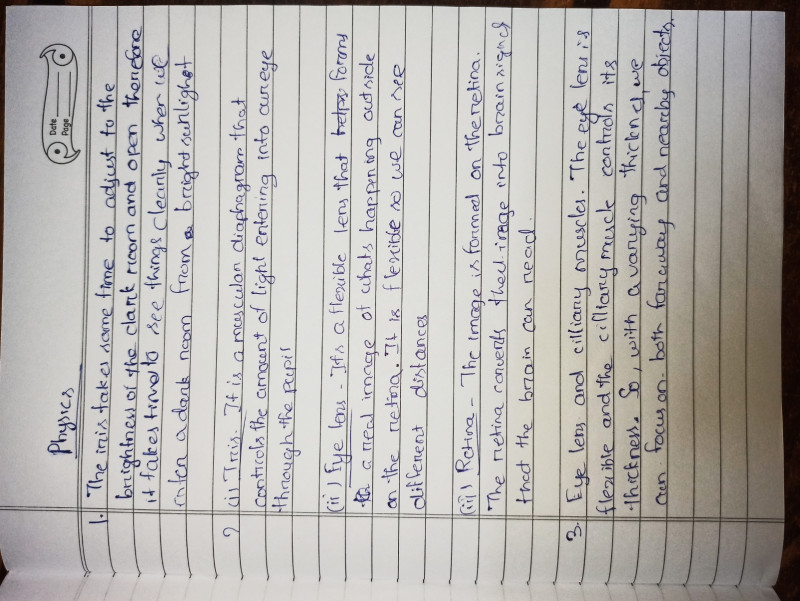 Date
Page
Physics
1. The iris takes some time to adjust to the
brightness of the dark room and open therefore
it takes time to see things clearly when we
enter a dark room from a bright sunlight
2 (i) Iris. It is a muscular diaphagram that
controls the amount of light entering into our eye
through the pupil
(ii) Eye lens - It's a flexible lens that forms
a real image of whats happning outside
on the retina. It is flexible so we can see
different distances
(iii) Retina - The image is formed on the retina.
The retina converts that image into brain signel
that the brain can read.
3. Eye lens and cilliary muscles. The eye lens is
flexible and the cilliary muscle controls its
thickness. So, with a varying thickned, we
can focus on both far away and nearby objects.